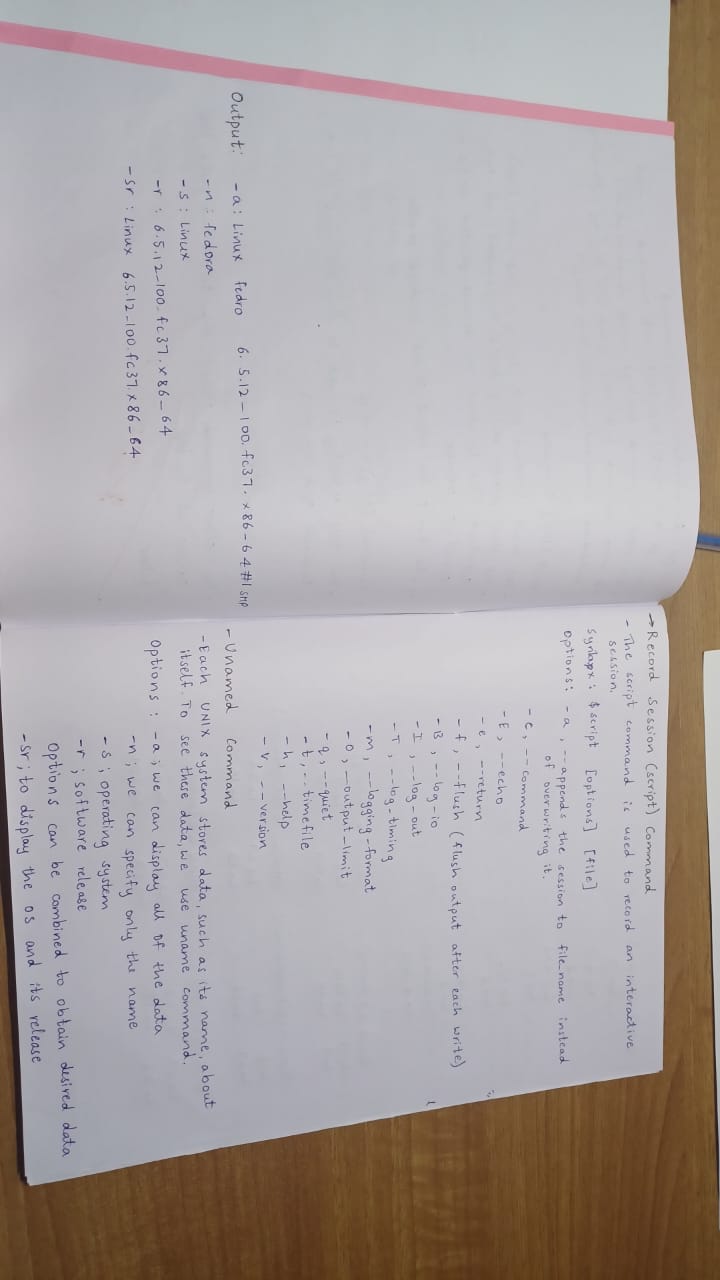 Output: -a: Linux fedro 6.5.12-100.fc37.x86-64 #1 SMP
-n: fedora
-s: Linux
-r: 6.5.12-100.fc37.x86_64
-sr: Linux 6.5.12-100.fc37.x86_64
→ Record Session (script) Command
- The script command is used to record an interactive
session.
Syntapx: $script [options] [file]
Options: -a, --appends the session to file_name instead
of overwriting it.
-c, --command
-E, --echo
-e, --return
-f, --flush (flush output after each write)
-B, --log-io
-I, --log-out
-T, --log-timing
-m, --logging-format
-O, --output-limit
-q, --quiet
-t, --timefile
-h, --help
-v, --version
- Unamed Command
- Each UNIX system stores data, such as its name, about
itself. To see these data, we use uname command.
Options: -a; we can display all of the data
-n; we can specify only the name
-s; operating system
-r; software release
Options can be combined to obtain desired data
-sr; to display the os and its release